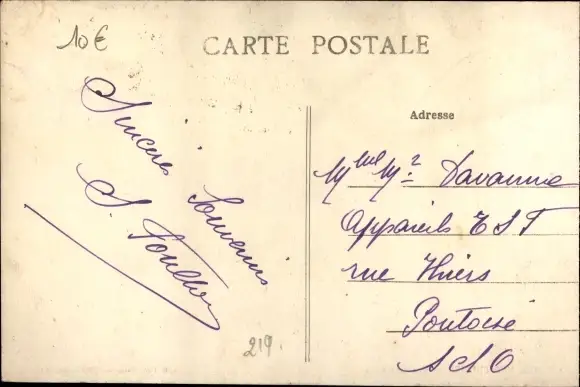 10 €
CARTE POSTALE
Sincères
Souvenirs
S.
219
Adresse
Mme Mr Davanne
Appareils T S F
rue Thiers
Pontoise
S et O